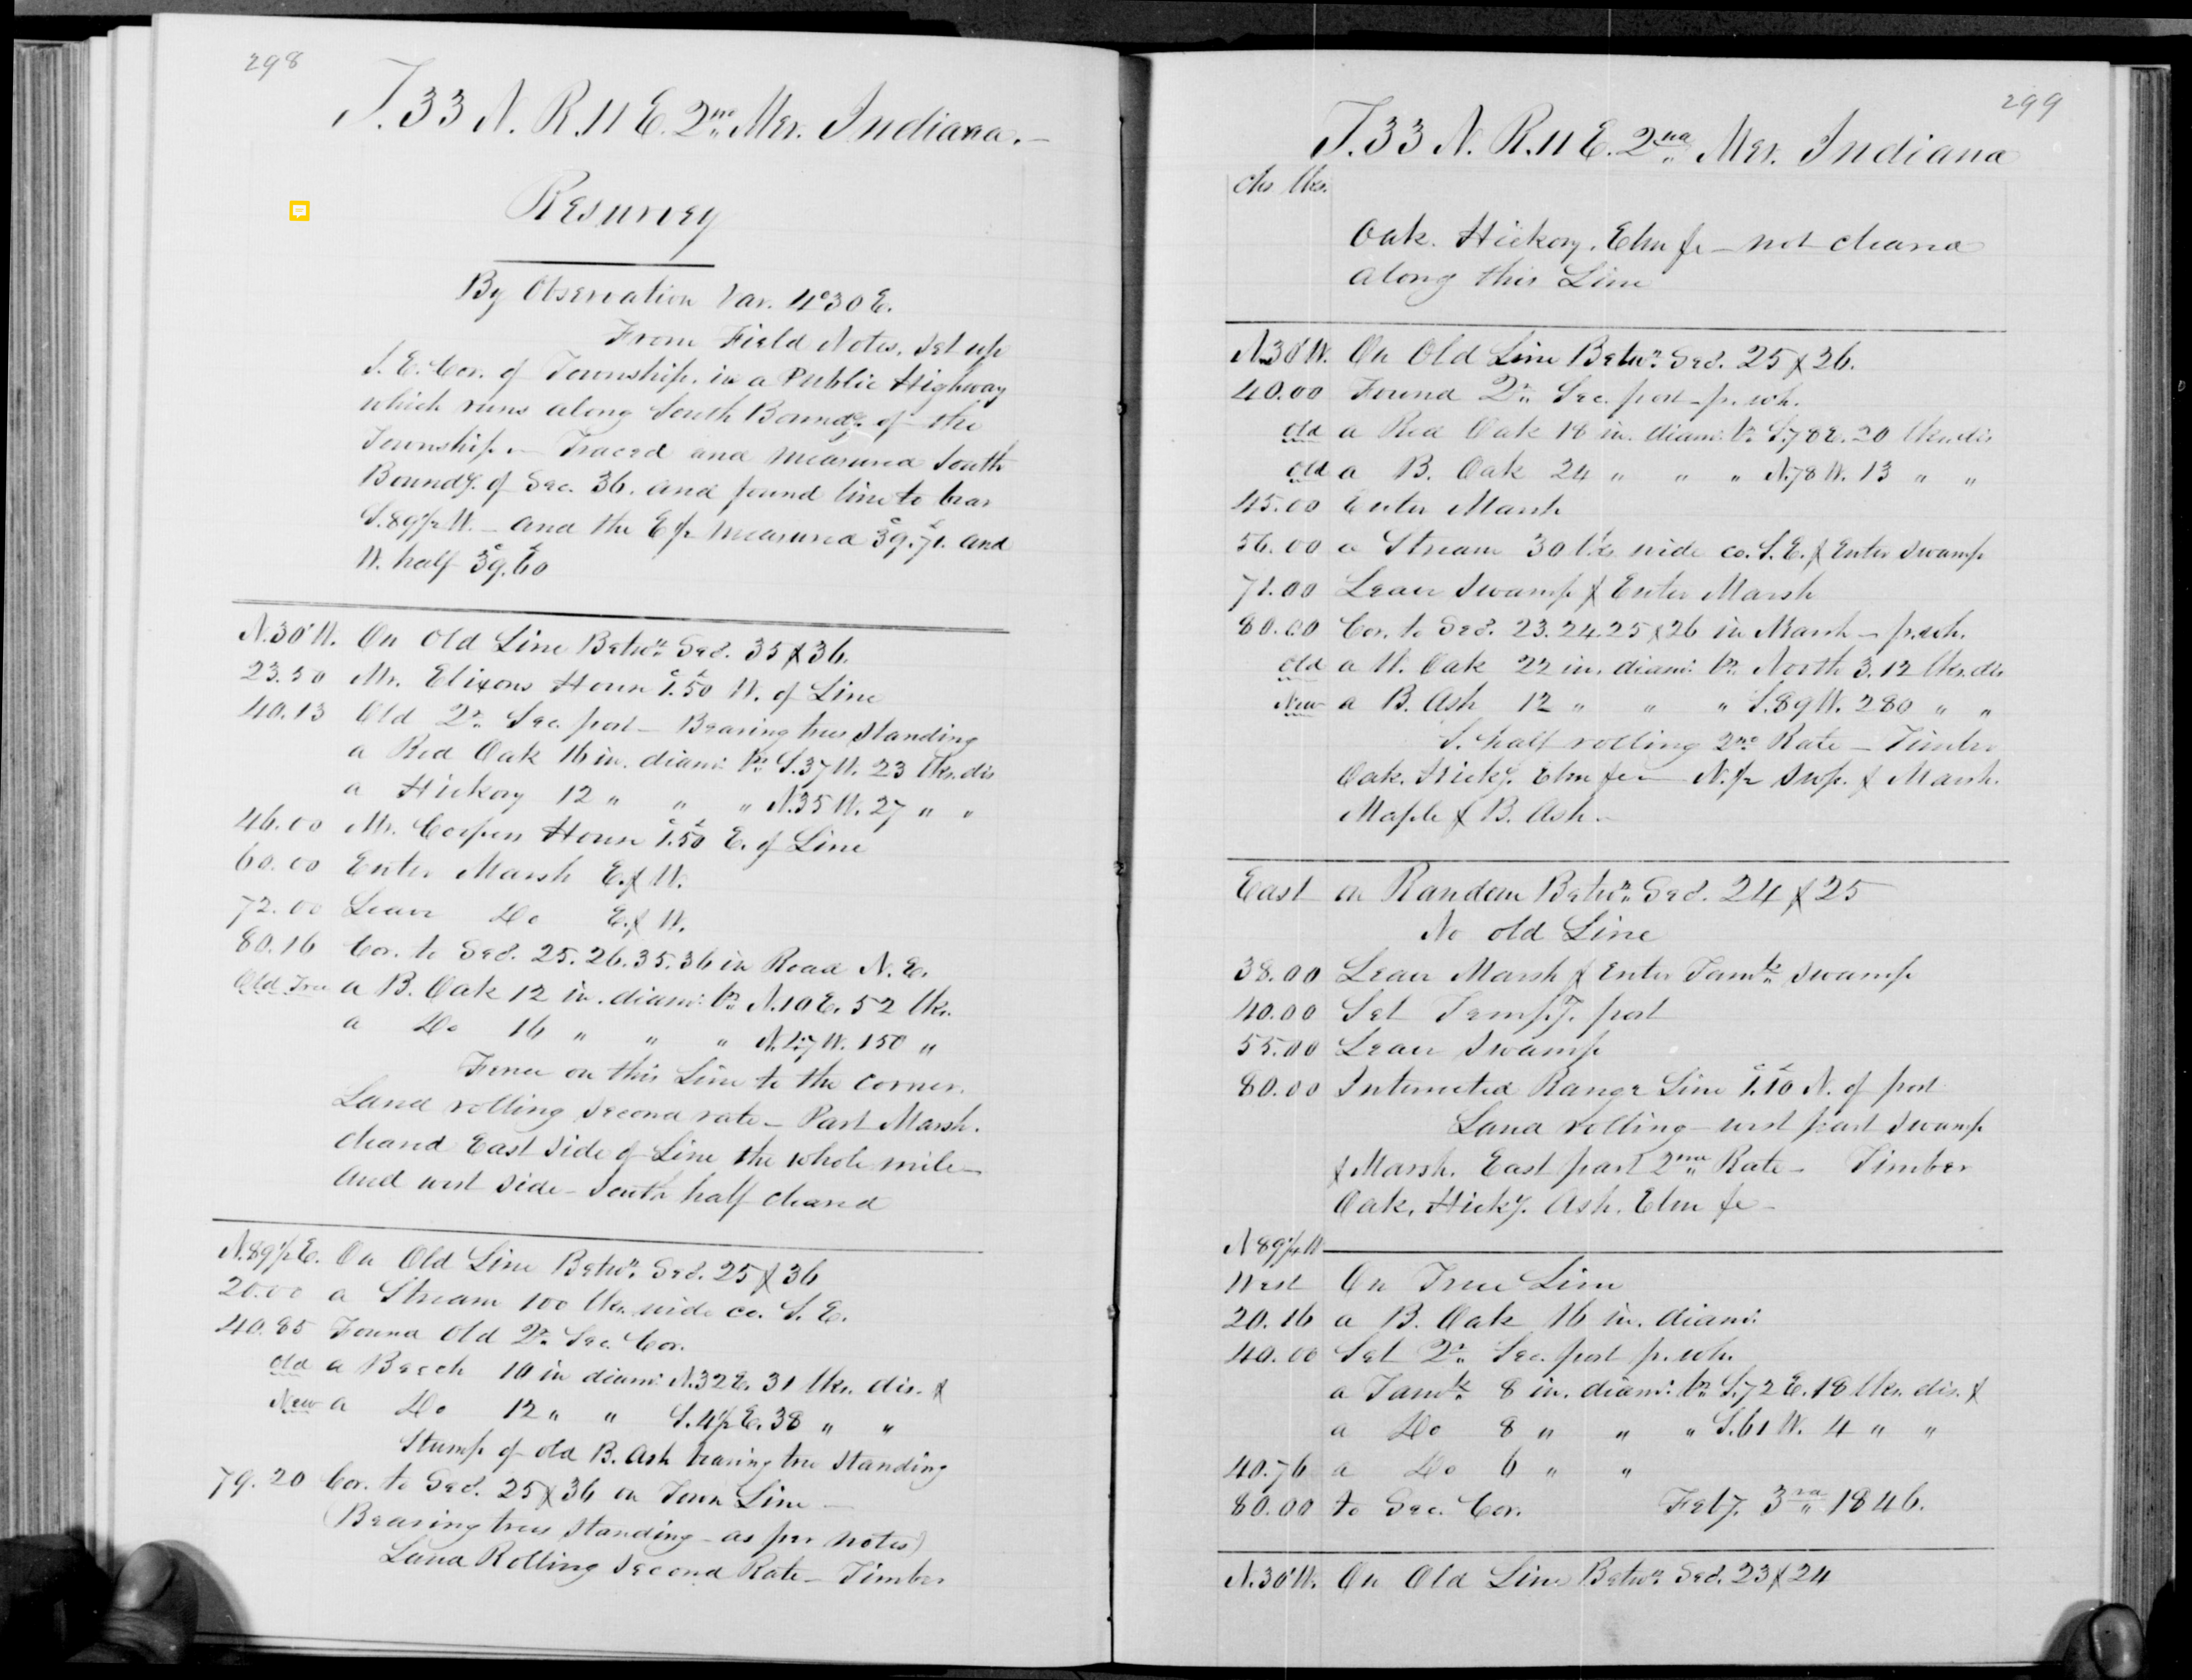 298
T. 33 N. R. 11 E. 2nd Mer. Indiana.
Resurvey
By Observation Var. 4°30 E.
From Field Notes, Set up
S. E. Cor. of Township. in a Public Highway
which runs along South Boundy. of the
Township — Traced and measured South
Boundy. of Sec. 36. and found line to bear
S. 89½ W. — and the E ½ measured 39.71. and
W. half 39.60
N. 30' W. On Old Line Betwn. Secs. 35 & 36.
23.50 Mr. Elixons House 1.50 W. of Line
40.13 Old Qr. Sec. post — Bearing trees standing
a Red Oak 16 in. diam. br. S. 37 W. 23 lks. dis
a Hickory 12 " " " N. 35 W. 27 " "
46.00 Mr. House 1.50 E. of Line
60.00 Enter Marsh E. & W.
72.00 Leave Do E. & W.
80.16 Cor. to Secs. 25. 26. 35. 36 in Road N. E.
Old Tree a B. Oak 12 in. diam. br. N. 10 E. 52 lks.
a Do 16 " " " W. 150 "
Fence on this Line to the corner.
Land rolling second rate — Part Marsh.
cleared East side of Line the whole mile —
and west side — South half cleared
N. 89½ E. On Old Line Betwn. Secs. 25 & 36
20.00 a Stream 100 lks. wide co. S. E.
40.85 Found Old Qr. Sec. Cor.
Old a Beech 10 in diam. N. 32 E. 31 lks. dis. &
New a Do 12 " " S. 4½ E. 38 " "
Stump of old B. Ash bearing tree standing
79.20 Cor. to Secs. 25 & 36 on Town Line —
(Bearing trees standing — as per notes)
Land Rolling Second Rate — Timber
299
T. 33 N. R. 11 E. 2nd Mer. Indiana
chs lks.
Oak. Hickory. Elm &c — not cleared
along this Line
N. 30' W. On Old Line Betwn. Secs. 25 & 26.
40.00 Found Qr. Sec. post — p. wh.
Old a Red Oak 18 in. diam. br. S. 78 E. 20 lks. dis
Old a B. Oak 24 " " " N. 78 W. 13 " "
45.00 Enter Marsh
56.00 a Stream 30 lks wide co. S. E. & Enter Swamp
71.00 Leave Swamp & Enter Marsh
80.00 Cor. to Secs. 23. 24. 25 & 26 in Marsh — p. wh.
Old a W. Oak 22 in. diam. br. North 3.12 lks. dis
New a B. Ash 12 " " " S. 89 W. 280 " "
S. half rolling 2nd Rate — Timber
Oak. Hicky. Elm &c — N. ½ Swp. & Marsh.
Maple & B. Ash. —
East on Random Betwn. Secs. 24 & 25
No old Line
38.00 Leave Marsh & Enter Tamk. Swamp
40.00 Set Tempy. post
55.00 Leave Swamp
80.00 Intersected Range Line 1.10 N. of post
Land rolling — west part Swamp
& Marsh. East part 2nd Rate — Timber
Oak, Hicky. Ash. Elm &c —
N 89¼ W
West On True Line
20.16 a B. Oak 16 in. diam.
40.00 Set Qr. Sec. post p. wh.
a Tamk. 8 in. diam. br. S. 72 E. 18 lks. dis. &
a Do 8 " " " S. 61 W. 4 " "
40.76 a Do 6 " "
80.00 to Sec. Cor. Feby. 3rd 1846.
N. 30' W. On Old Line Betwn. Secs. 23 & 24